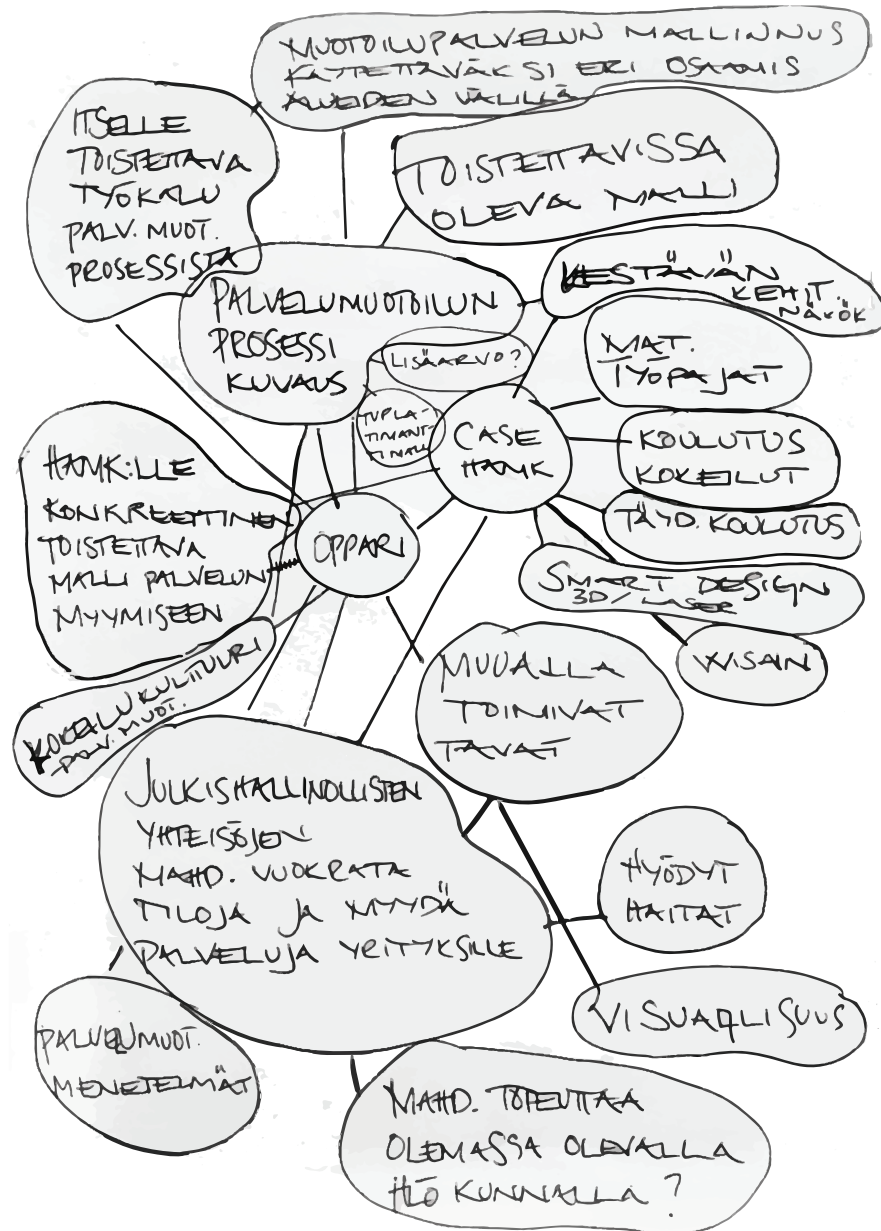 MUOTOILUPALVELUN MALLINNUS
KÄYTETTÄVÄKSI ERI OSAAMIS
ALUEIDEN VÄLILLÄ
ITSELLE
TOISTETTAVA
TYÖKALU
PALV. MUOT.
PROSESSISTA
TOISTETTAVISSA
OLEVA MALLI
PALVELUMUOTOILUN
PROSESSI
KUVAUS
KESTÄVÄN
KEHIT.
NÄKÖK
LISÄARVO?
MAT.
TYÖPAJAT
TUPLA-
TIMANT-
TI MALLI
CASE
HAMK
KOULUTUS
KOKEILUT
HAMK:LLE
KONKREETTINEN
TOISTETTAVA
MALLI PALVELUN
MYYMISEEN
OPPARI
TÄYD. KOULUTUS
SMART DESIGN
3D/LASER
WISAIN
MUUALLA
TOIMIVAT
TAVAT
KOKEILUKULTTUURI
PALV. MUOT.
JULKISHALLINOLLISTEN
YHTEISÖJEN
MAHD. VUOKRATA
TILOJA JA MYYDÄ
PALVELUJA YRITYKSILLE
HYÖDYT
HAITAT
VISUAALISUUS
PALVELUMUOT.
MENETELMÄT
MAHD. TOTEUTTAA
OLEMASSA OLEVALLA
HLÖ KUNNALLA?